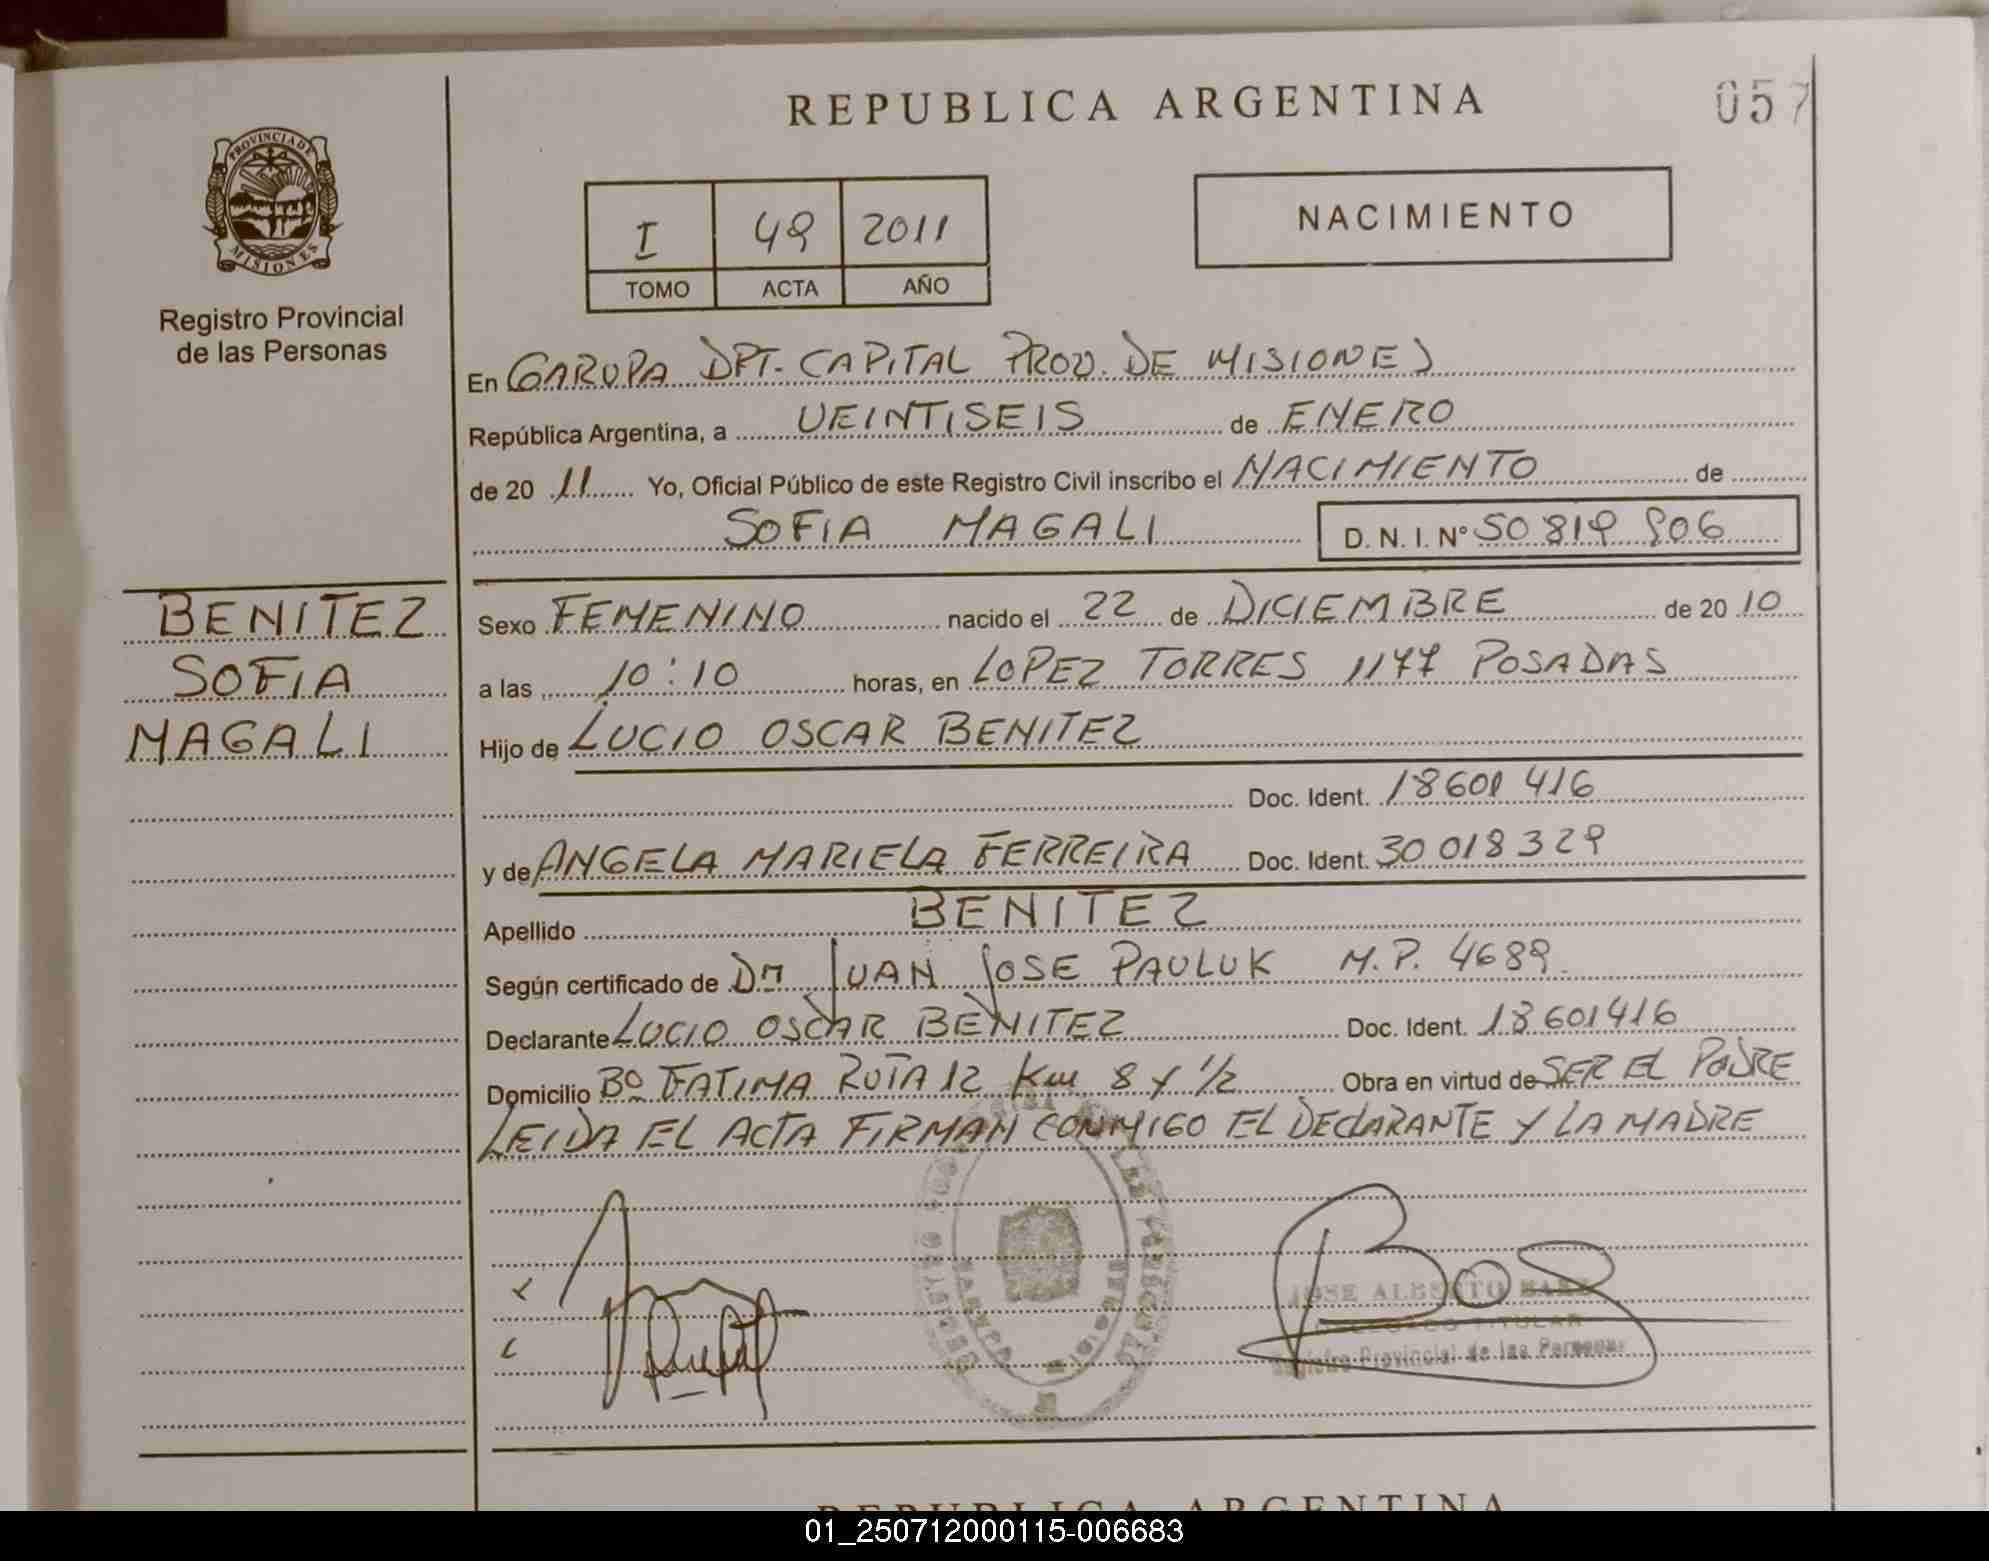 REPUBLICA ARGENTINA
057
PROVINCIA DE
MISIONES
Registro Provincial
de las Personas
I 49 2011
TOMO ACTA AÑO
NACIMIENTO
En GARUPA DPT. CAPITAL PROV. DE MISIONES
República Argentina, a VEINTISEIS de ENERO
de 20 11 Yo, Oficial Público de este Registro Civil inscribo el NACIMIENTO de
SOFIA MAGALI D. N. I. N° 50 819 906
BENITEZ
SOFIA
MAGALI
Sexo FEMENINO nacido el 22 de DICIEMBRE de 20 10
a las 10:10 horas, en LOPEZ TORRES 1177 POSADAS
Hijo de LUCIO OSCAR BENITEZ
Doc. Ident. 18601 416
y de ANGELA MARIELA FERREIRA Doc. Ident. 30 018 329
Apellido BENITEZ
Según certificado de Dr JUAN JOSE PAULUK M.P. 4689
Declarante LUCIO OSCAR BENITEZ Doc. Ident. 18601416
Domicilio Bº FATIMA RUTA 12 Km 8 y 1/2 Obra en virtud de SER EL PADRE
LEIDA EL ACTA FIRMAN CONMIGO EL DECLARANTE Y LA MADRE
JOSE ALBERTO BAEZ
DELEGADO TITULAR
Registro Provincial de las Personas
REPUBLICA ARGENTINA
01_250712000115-006683